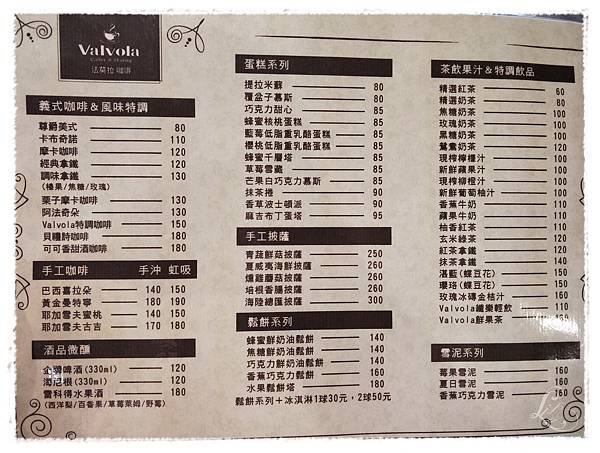 Valvola
Coffee & Dining
法菲拉 咖啡
義式咖啡&風味特調
尊爵美式 80
卡布奇諾 110
摩卡咖啡 120
經典拿鐵 120
調味拿鐵 130
(榛果/焦糖/玫瑰)
栗子摩卡咖啡 130
阿法奇朵 130
Valvola特調咖啡 150
貝禮詩咖啡 180
可可香甜酒咖啡 180
手工咖啡 手沖 虹吸
巴西喜拉朵 140 150
黃金曼特寧 180 190
耶加雪夫蜜桃 140 150
耶加雪夫古吉 170 180
酒品微醺
金牌啤酒(330ml) 120
海尼根(330ml) 120
雷科得水果酒 180
(西洋梨/百香果/草莓萊姆/野莓)
蛋糕系列
提拉米蘇 80
覆盆子慕斯 80
巧克力甜心 85
蜂蜜核桃蛋糕 80
藍莓低脂重乳酪蛋糕 80
櫻桃低脂重乳酪蛋糕 80
蜂蜜千層塔 85
草莓雪藏 85
芒果白巧克力慕斯 85
抹茶捲 90
香草波士頓派 95
麻吉布丁蛋塔 95
手工披薩
青蔬鮮菇披薩 250
夏威夷海鮮披薩 260
燻雞蘑菇披薩 260
培根香腸披薩 260
海陸總匯披薩 300
鬆餅系列
蜂蜜鮮奶油鬆餅 140
焦糖鮮奶油鬆餅 140
巧克力鮮奶油鬆餅 140
香蕉巧克力鬆餅 160
水果鬆餅塔 180
鬆餅系列+冰淇淋1球30元,2球50元
茶飲果汁&特調飲品
精選紅茶 60
精選奶茶 80
焦糖奶茶 100
玫瑰奶茶 100
黑糖奶茶 100
鴛鴦奶茶 120
現榨檸檬汁 100
新鮮蘋果汁 100
現榨柳橙汁 100
新鮮葡萄柚汁 100
香蕉牛奶 110
蘋果牛奶 110
柚香紅茶 110
玄米綠茶 120
紅茶拿鐵 120
抹茶拿鐵 140
湛藍(蝶豆花) 150
瓔珞(蝶豆花) 150
玫瑰冰磚金桔汁 160
Valvola纖樂輕飲 110
Valvola鮮果茶 160
雪泥系列
莓果雪泥 160
夏日雪泥 160
香蕉巧克力雪泥 160